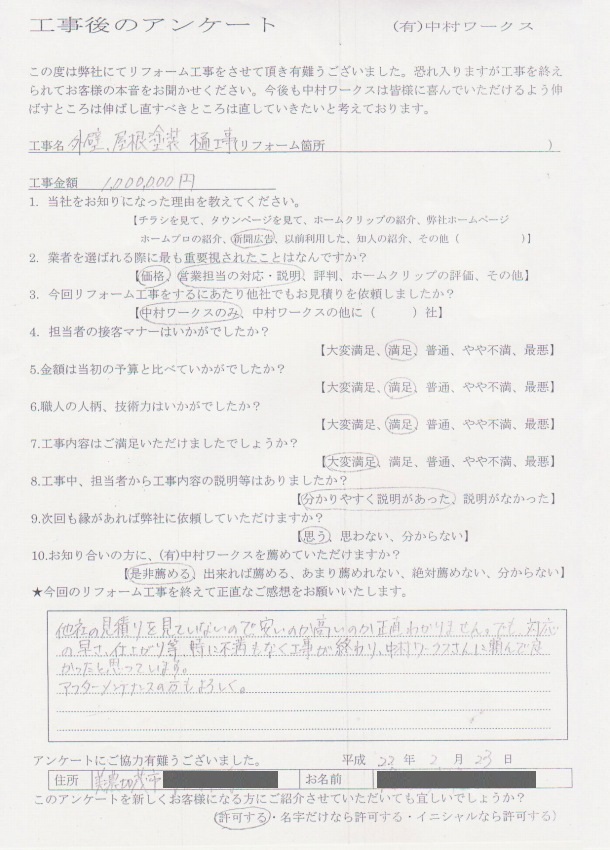 工事後のアンケート　(有)中村ワークス
この度は弊社にてリフォーム工事をさせて頂き有難うございました。恐れ入りますが工事を終え
られてお客様の本音をお聞かせください。今後も中村ワークスは皆様に喜んでいただけるよう伸
ばすところは伸ばし直すべきところは直していきたいと考えております。
工事名 外壁、屋根塗装 樋工事(リフォーム箇所　)
工事金額 1,000,000円
1. 当社をお知りになった理由を教えてください。
【チラシを見て、タウンページを見て、ホームクリップの紹介、弊社ホームページ
ホームプロの紹介、新聞広告、以前利用した、知人の紹介、その他（　）】
2. 業者を選ばれる際に最も重要視されたことはなんですか？
【価格、営業担当の対応・説明、評判、ホームクリップの評価、その他】
3. 今回リフォーム工事をするにあたり他社でもお見積りを依頼しましたか？
【中村ワークスのみ、中村ワークスの他に（　）社】
4. 担当者の接客マナーはいかがでしたか？
【大変満足、満足、普通、やや不満、最悪】
5.金額は当初の予算と比べていかがでしたか？
【大変満足、満足、普通、やや不満、最悪】
6.職人の人柄、技術力はいかがでしたか？
【大変満足、満足、普通、やや不満、最悪】
7.工事内容はご満足いただけましたでしょうか？
【大変満足、満足、普通、やや不満、最悪】
8.工事中、担当者から工事内容の説明等はありましたか？
【分かりやすく説明があった、説明がなかった】
9.次回も縁があれば弊社に依頼していただけますか？
【思う、思わない、分からない】
10.お知り合いの方に、(有)中村ワークスを薦めていただけますか？
【是非薦める、出来れば薦める、あまり薦めれない、絶対薦めない、分からない】
★今回のリフォーム工事を終えて正直なご感想をお願いいたします。
他社の見積りを見ていないので安いのか高いのか正直わかりません。でも、対応
の早さ、仕上がり等、特に不満もなく工事が終わり、中村ワークスさんに頼んで良
かったと思っています。
アフターメンテナンスの方もよろしく。
アンケートにご協力有難うございました。　平成 23 年 2 月 23 日
住所 美濃加茂市　お名前
このアンケートを新しくお客様になる方にご紹介させていただいても宜しいでしょうか？
(許可する・名字だけなら許可する・イニシャルなら許可する)